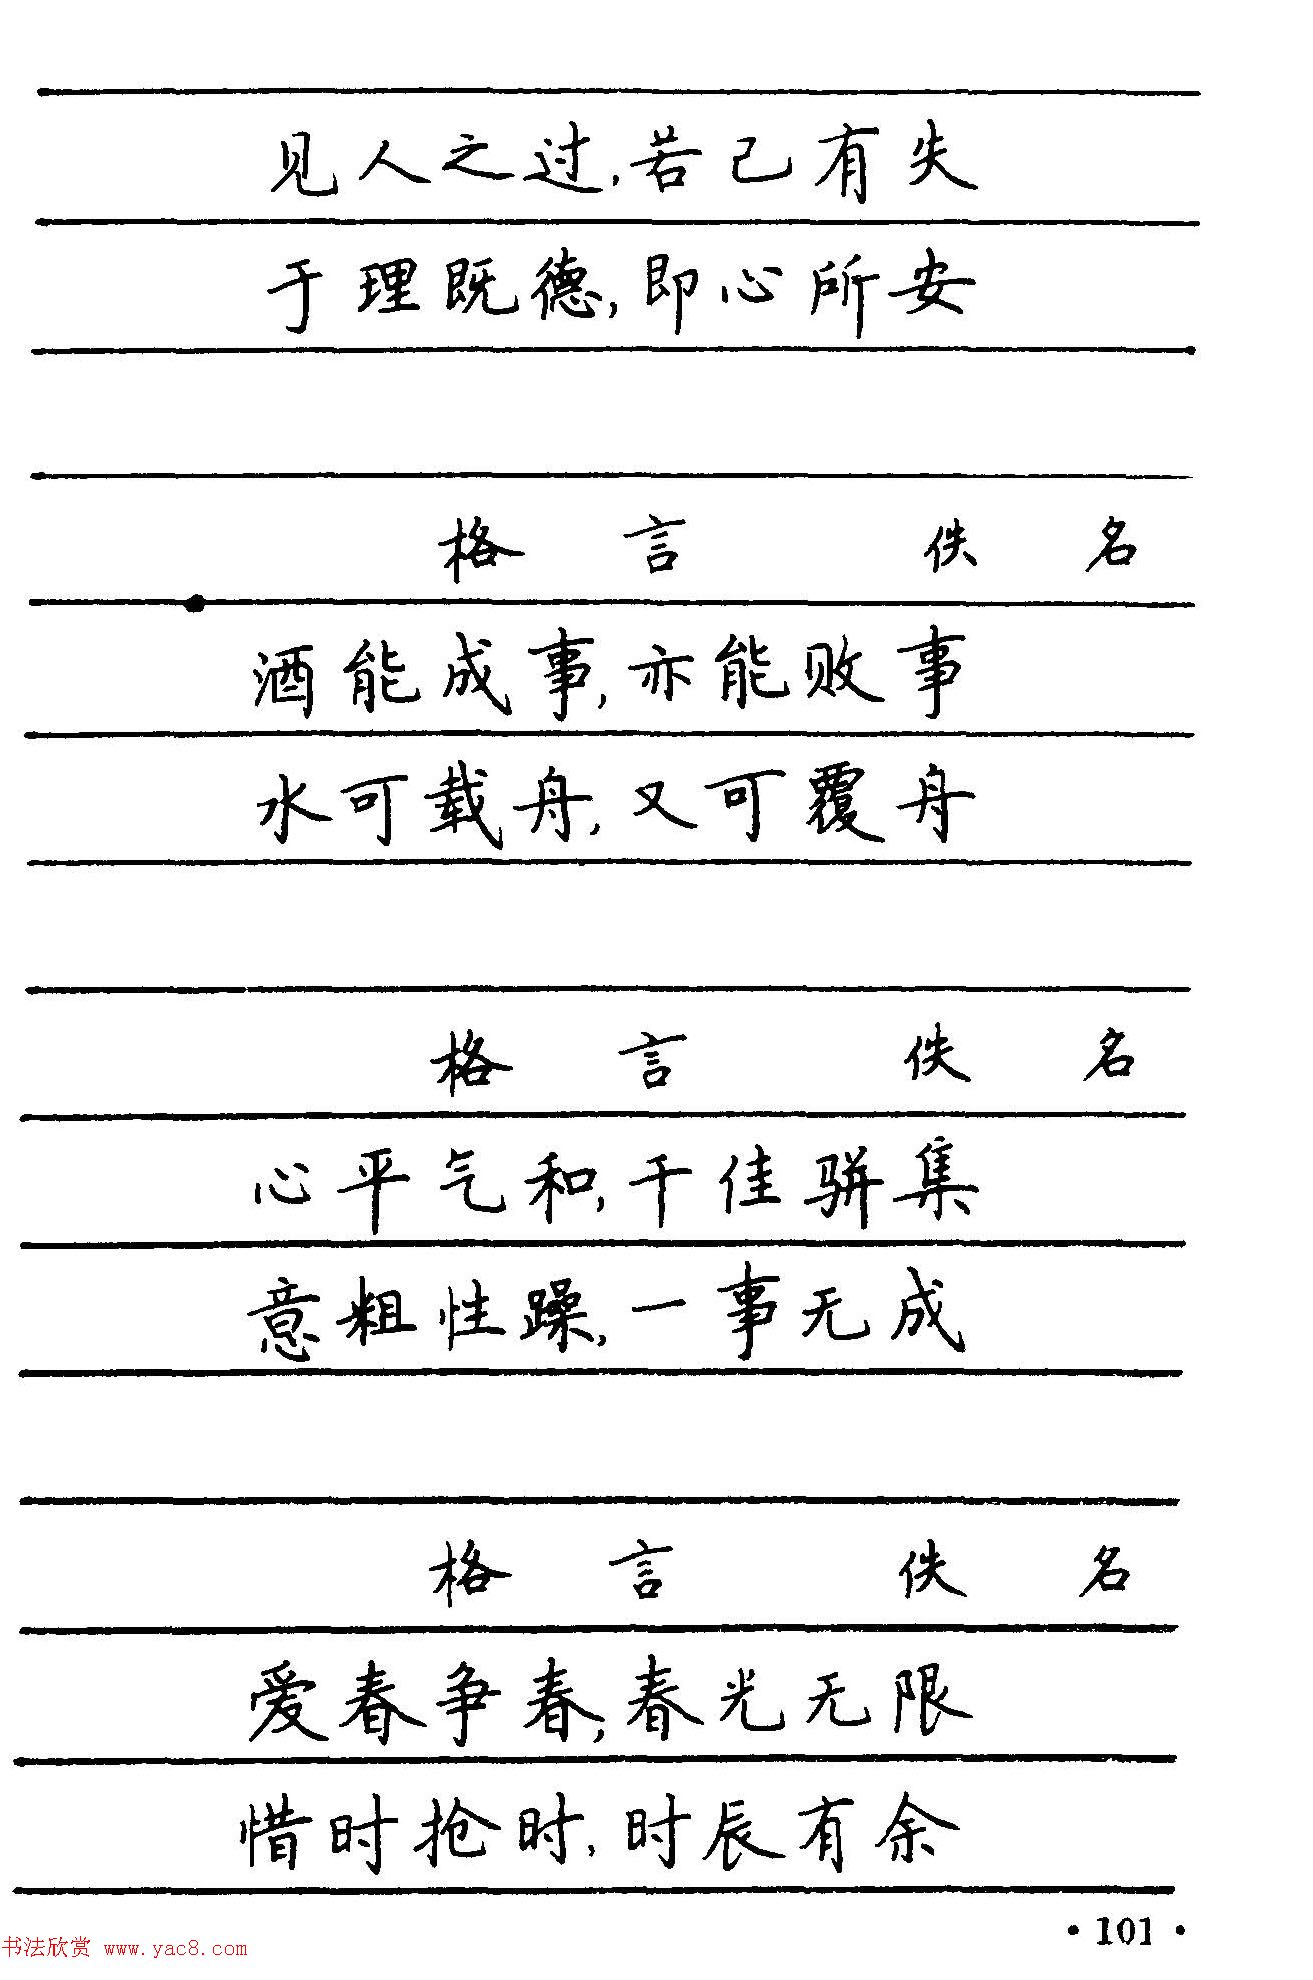 见人之过,若己有失
于理既德,即心所安
格言 佚名
酒能成事,亦能败事
水可载舟,又可覆舟
格言 佚名
心平气和,千佳骈集
意粗性躁,一事无成
格言 佚名
爱春争春,春光无限
惜时抢时,时辰有余
·101·
书法欣赏 www.yac8.com